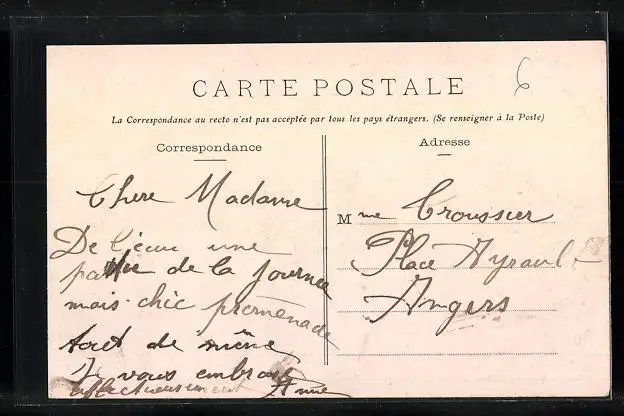 6
CARTE POSTALE
La Correspondance au recto n'est pas acceptée par tous les pays étrangers. (Se renseigner à la Poste)
Correspondance
Adresse
Chere Madame
une
partie de la journee
mais chic promenade
tout de même
Je vous embrasse
affectueusement
Mme Croussier
Place Ayrault
Angers